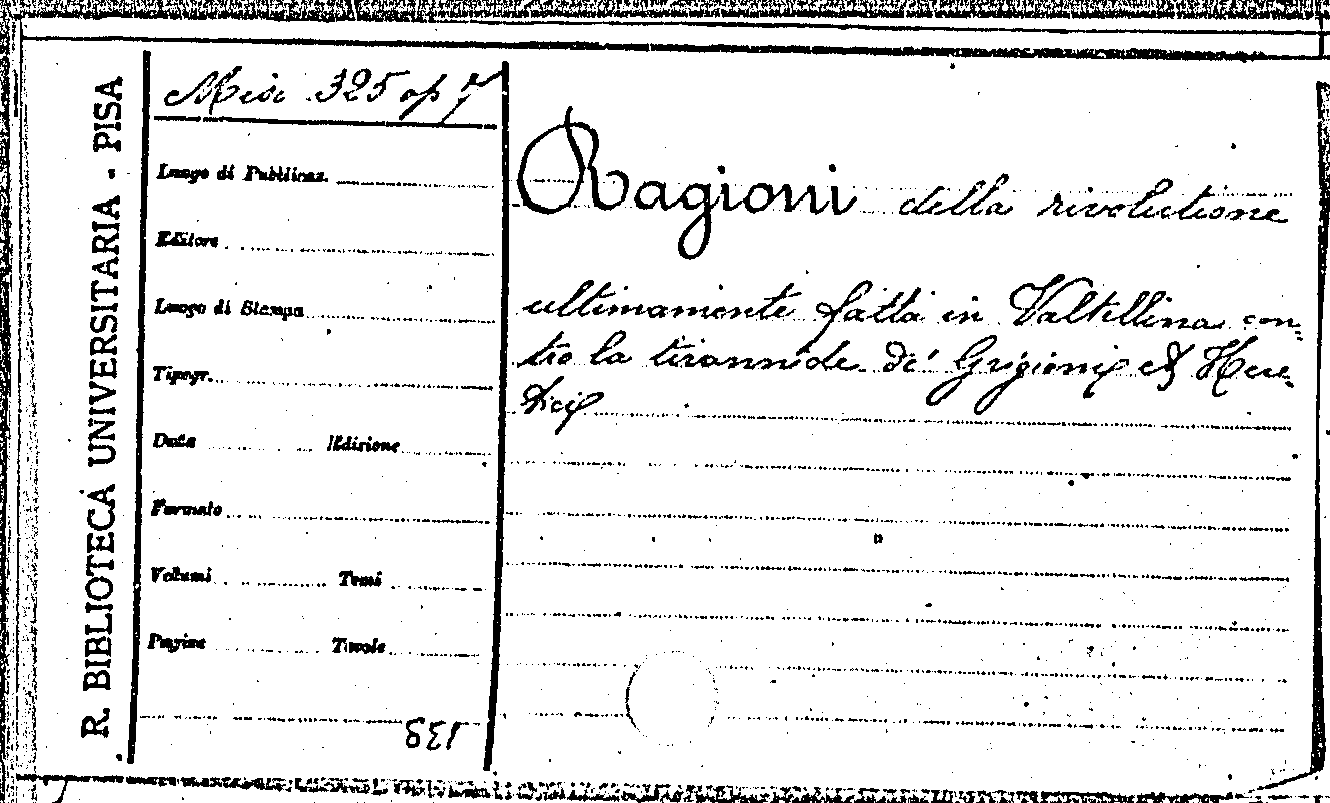 R. BIBLIOTECA UNIVERSITARIA - PISA
Misc 325 op 7
Luogo di Pubblicaz.
Editore
Luogo di Stampa
Tipogr.
Data Edizione
Formato
Volumi Tomi
Pagine Tavole
Ragioni della rivolutione
ultimamente fatta in Valtellina con„
tro la tirannide de' Grigioni et Here„
tici